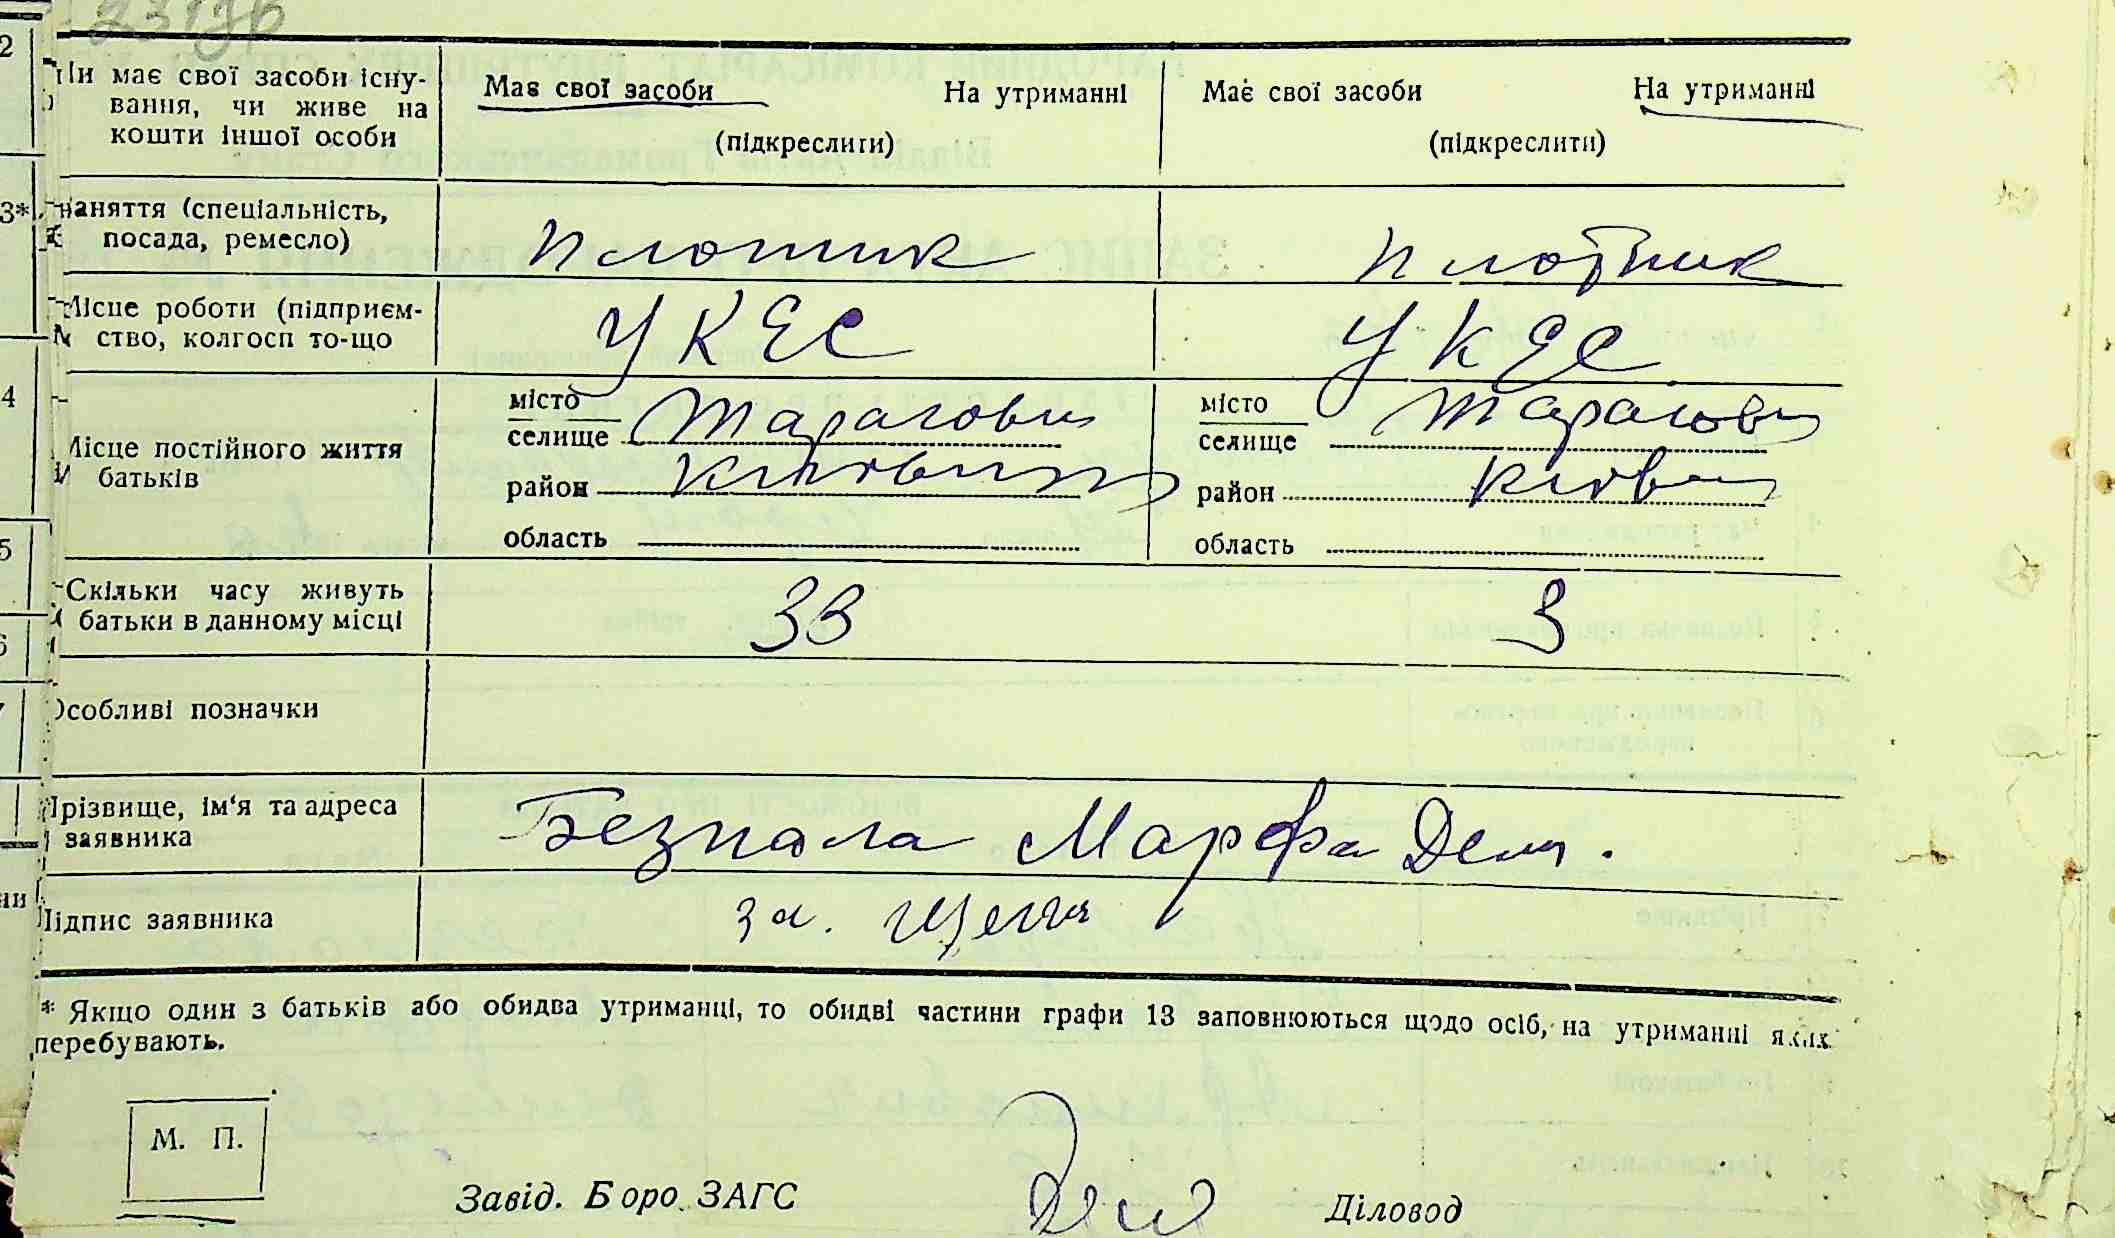 Чи має свої засоби існу-
вання, чи живе на
кошти іншої особи
Має свої засоби На утриманні
(підкреслити)
Має свої засоби На утриманні
(підкреслити)
Заняття (спеціальність,
посада, ремесло)
плотник
плотник
Місце роботи (підприєм-
ство, колгосп то-що
УКЕС
УКЕС
Місце постійного життя
батьків
місто
селище
район
область
місто
селище
район
область
Скільки часу живуть
батьки в данному місці
33
3
Особливі позначки
Прізвище, ім'я та адреса
заявника
Безпала Марфа Дем.
Підпис заявника
за.
* Якщо один з батьків або обидва утриманці, то обидві частини графи 13 заповнюються щодо осіб, на утриманні яких
перебувають.
М. П.
Завід. Боро ЗАГС
Діловод